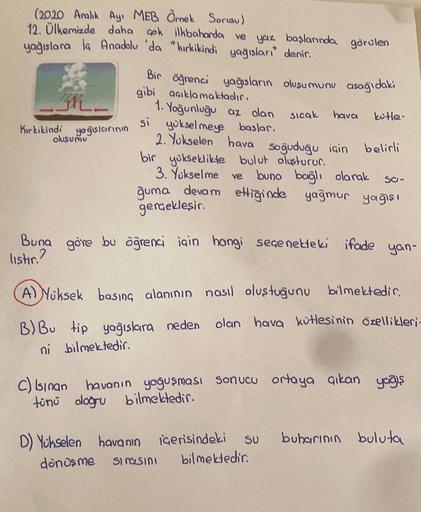 (2020 Aralık Ayı MEB Örnek Sorusu)
12. Ülkemizde daha çok ilkbaharda ve yaz başlarında görülen
yağışlara İç Anadolu 'da "kırkikindi yağışları" denir.
Kırkikindi yağışlarının
oluşumu
Bir öğrenci yağışların oluşumunu aşağıdaki
gibi açıklamaktadır.
1. Yoğunluğu az olan sıcak hava kütle-
si yükselmeye başlar.
2. Yükselen hava soğuduğu için belirli
bir yükseklikte bulut oluşturur.
3. Yükselme ve buna bağlı olarak so-
ğuma devam ettiğinde yağmur yağışı
gerçekleşir.
Buna göre bu öğrenci için hangi seçenekteki ifade yan-
lıştır?
A) Yüksek basınç alanının nasıl oluştuğunu bilmektedir.
B) Bu tip yağışlara neden olan hava kütlesinin özellikleri-
ni bilmektedir.
C) Isınan havanın yoğuşması sonucu ortaya çıkan yağış
türünü doğru bilmektedir.
D) Yükselen havanın içerisindeki su buharının buluta
dönüşme sırasını bilmektedir.